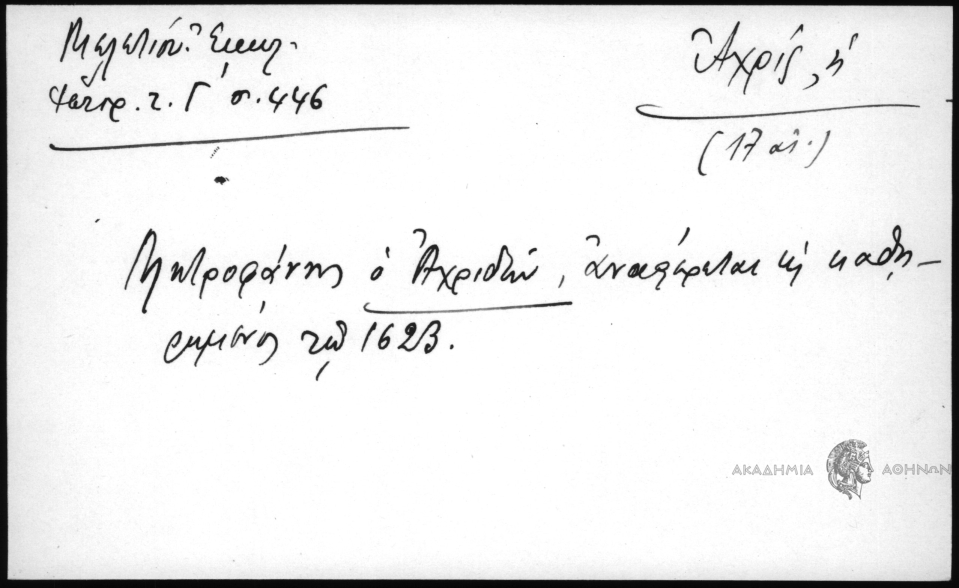 Μελετίου Ἐκκλ.
Ἱστορ. τ. Γ΄ σ. 446
Ἀχρίς, ἡ
(17 αἰ.)
Μητροφάνης ὁ Ἀχριδῶν, ἀναφέρεται ὡς καθῃ-
ρημένος τῷ 1623.
ΑΚΑΔΗΜΙΑ ΑΘΗΝΩΝ